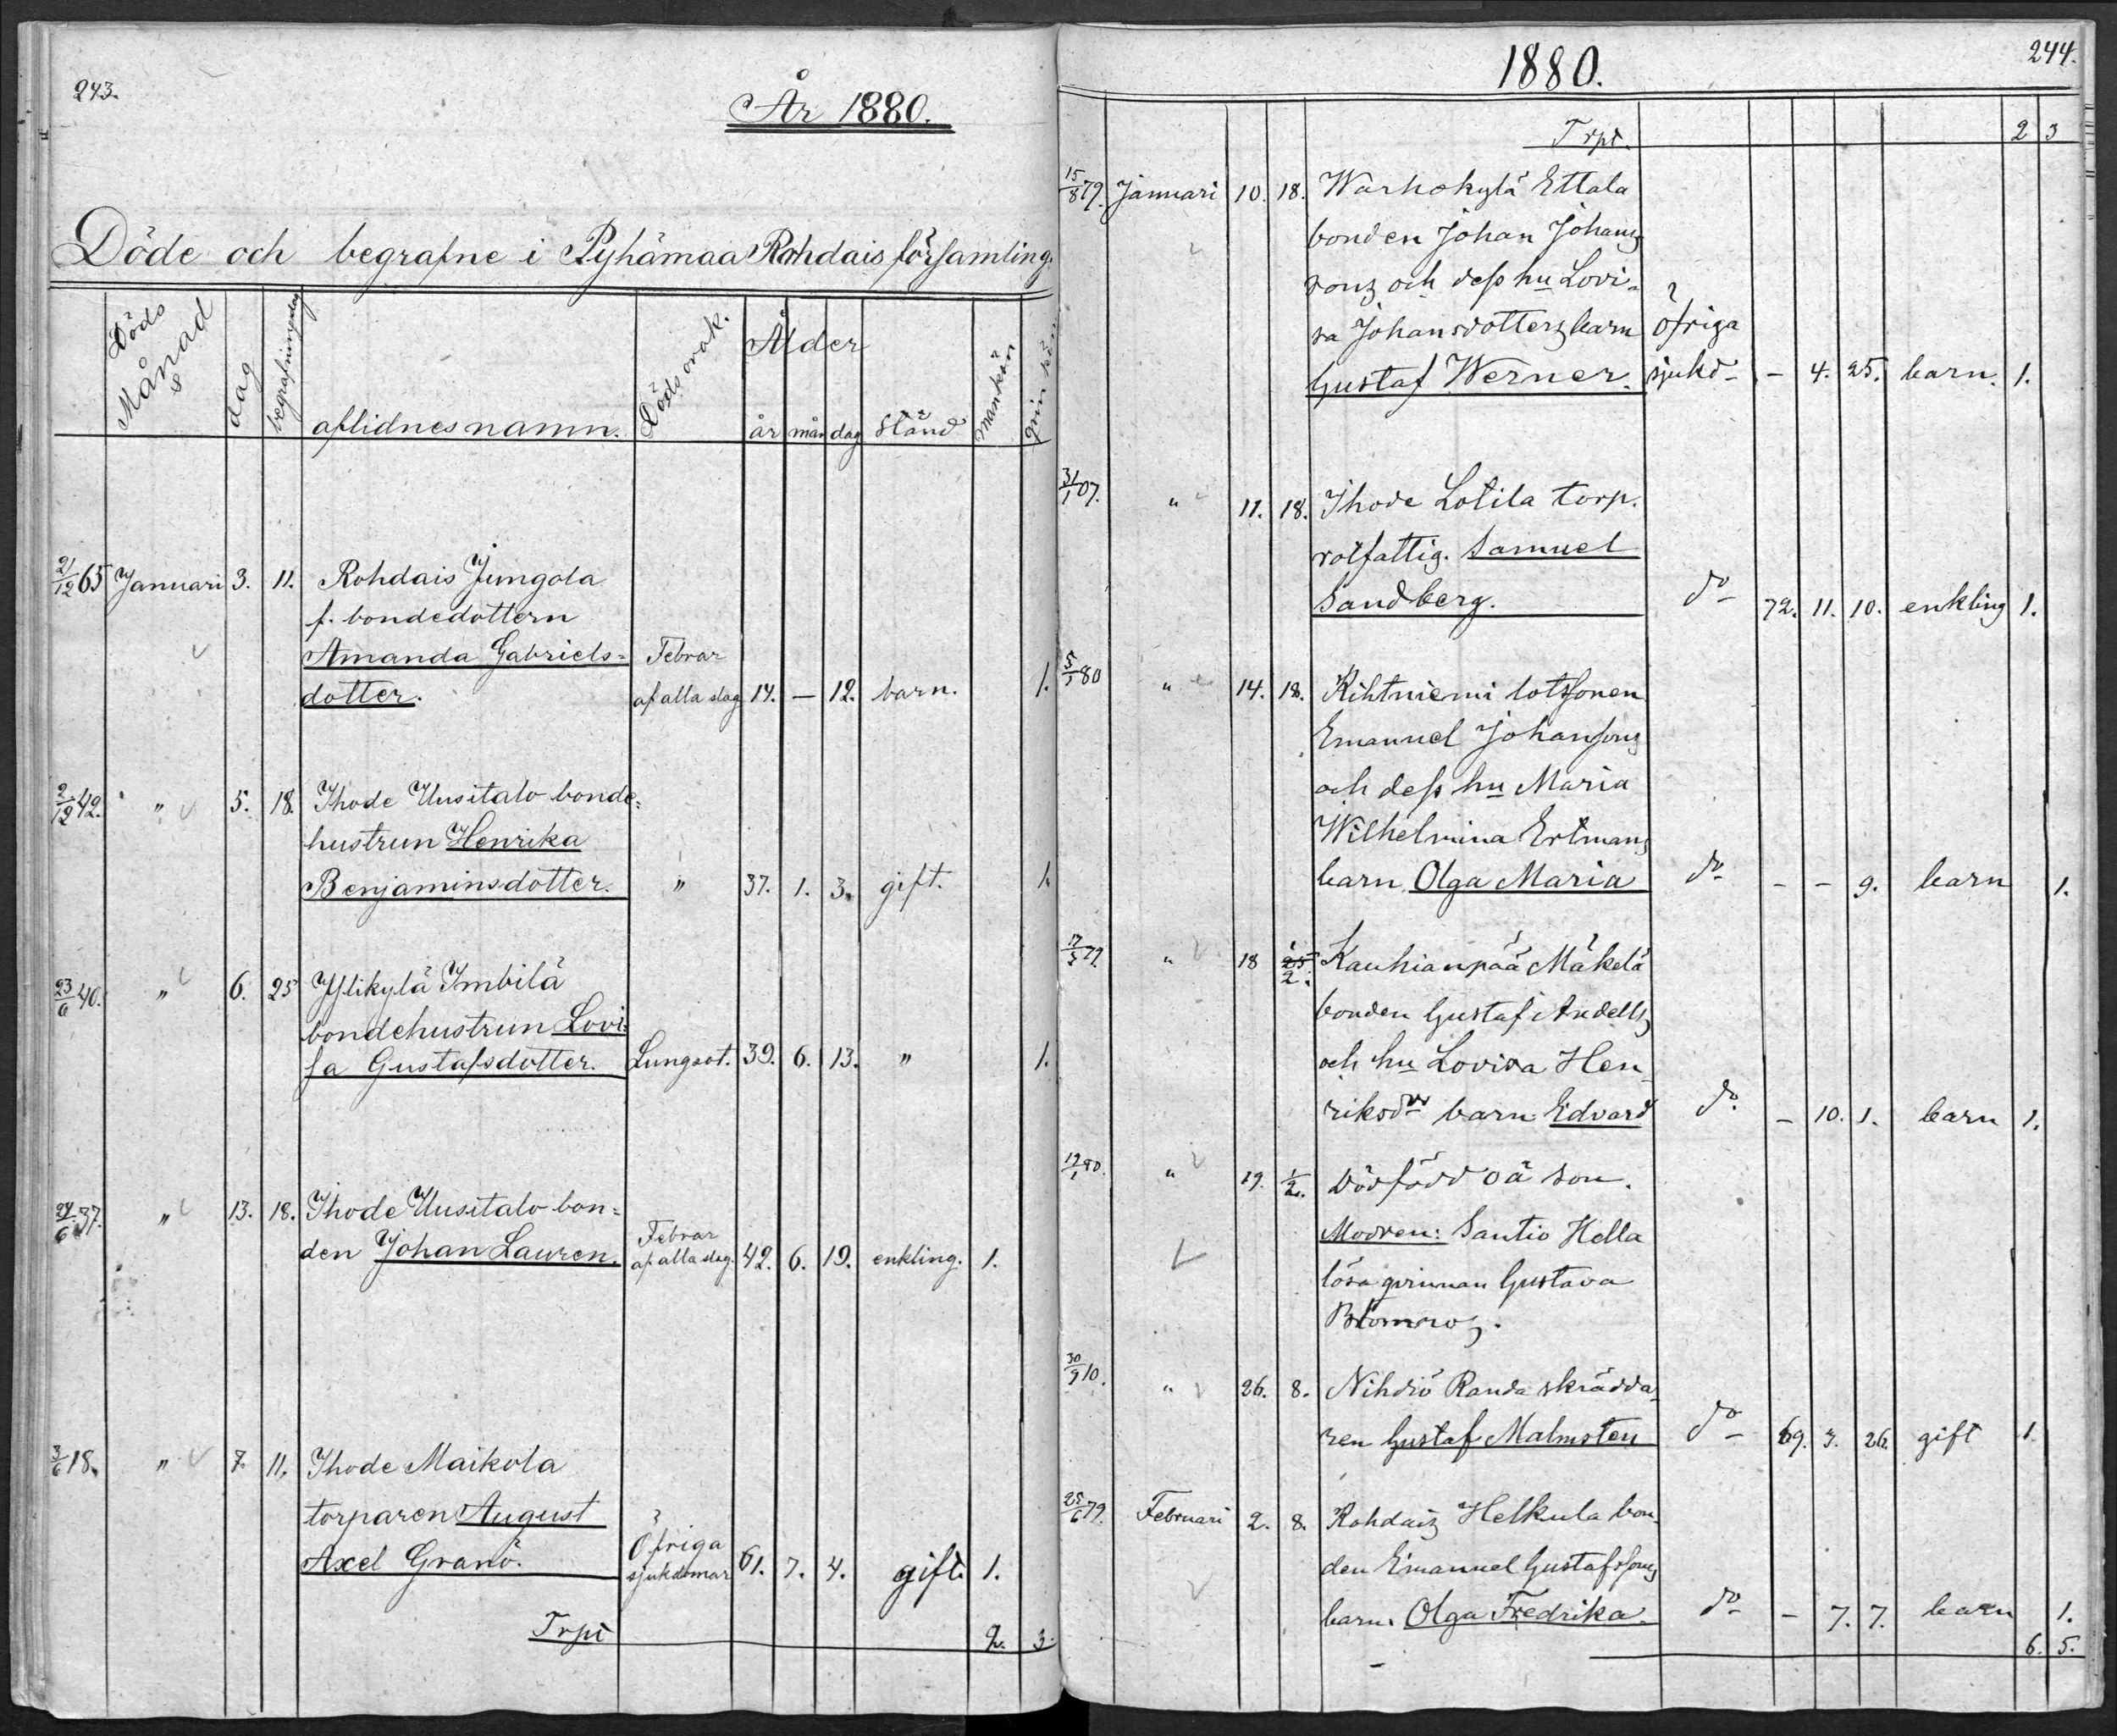 243.
År 1880.
Döde och begrafne i Pyhämaa Rohdais församling.
Döds Månad dag begrafningsdag aflidnes namn. Dödsorsak. Ålder år mån dag stånd mankön qvinkön
21/12 65 Januari 3. 11. Rohdais Jungola
f. bondedottern
Amanda Gabriels= Febrar
dotter. af alla slag 14. — 12. barn. 1.
2/12 42. " 5. 18. Ihode Uusitalo bonde=
hustrun Henrika
Benjaminsdotter. " 37. 1. 3. gift. 1.
23/6 40. " 6. 25 Ylikylä Imbilä
bondehustrun Lovi=
sa Gustafsdotter. Lungsot. 39. 6. 13. " 1.
24/6 37. " 13. 18. Ihode Uusitalo bon=
den Johan Lauren. Febrar af alla slag. 42. 6. 19. enkling. 1.
3/6 18. " 7. 11. Ihode Maikola
torparen August
Axel Granö. Öfriga sjukdomar 61. 7. 4. gift. 1.
Trpt 2. 3.
244.
1880.
Trpt. 2 3
15/8 79. Januari 10. 18. Warhokylä Ettala
bonden Johan Johans
sons och dess hu Lovi=
sa Johansdotters barn öfriga
Gustaf Werner. sjukd– – 4. 25. barn. 1.
31/1 07. " 11. 18. Ihode Lotila torp.
rotfattig. Samuel
Sandberg. do 72. 11. 10. enkling 1.
5/1 80 " 14. 18. Kihtniemi lotssonen
Emanuel Johansons
och dess hu Maria
Wilhelmina Ertmans
barn Olga Maria do – – 9. barn 1.
17/3 79. " 18 25 1/2. Kauhianpää Mäkelä
bonden Gustaf Andells
och hu Lovisa Hen=
riksdrs barn Edvard do – 10. 1. barn 1.
19/1 80. " 19. 1/2. Dödfödd oä son.
Modren: Santio Hella
lösa qvinnan Gustava
Blomros.
30/9 10. " 26. 8. Nihdiö Randa skrädda=
ren Gustaf Malmsten do 69. 3. 26. gift 1
25/6 79. Februari 2. 8. Rohdais Helkula bon=
den Emanuel Gustafssons
barn. Olga Fredrika. do – 7. 7. barn 1.
6. 5.